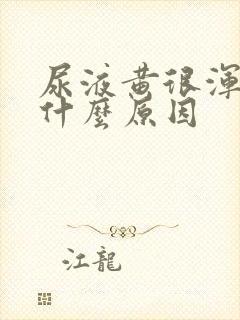 尿液黄很渾
什麼原因
江龍